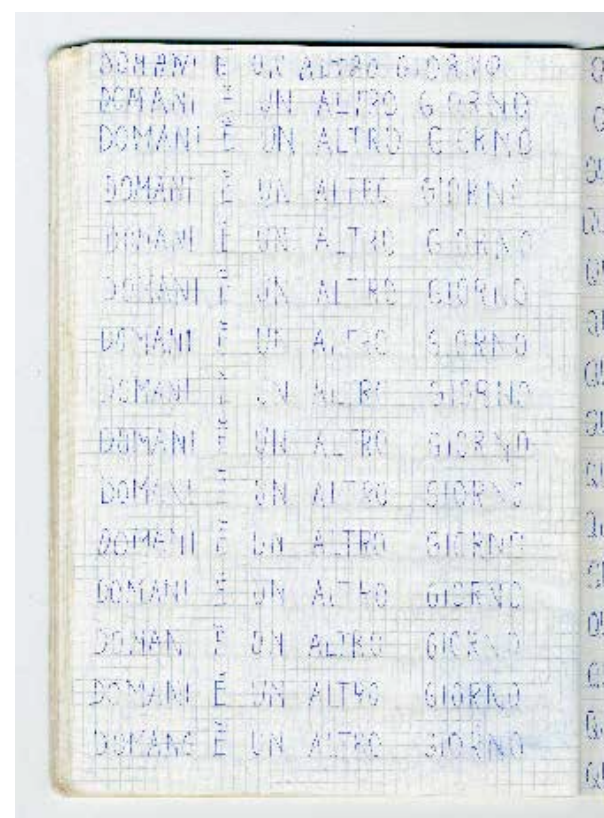 DOMANI È UN ALTRO GIORNO
DOMANI È UN ALTRO GIORNO
DOMANI È UN ALTRO GIORNO
DOMANI È UN ALTRO GIORNO
DOMANI È UN ALTRO GIORNO
DOMANI È UN ALTRO GIORNO
DOMANI È UN ALTRO GIORNO
DOMANI È UN ALTRO GIORNO
DOMANI È UN ALTRO GIORNO
DOMANI È UN ALTRO GIORNO
DOMANI È UN ALTRO GIORNO
DOMANI È UN ALTRO GIORNO
DOMANI È UN ALTRO GIORNO
DOMANI È UN ALTRO GIORNO
DOMANI È UN ALTRO GIORNO